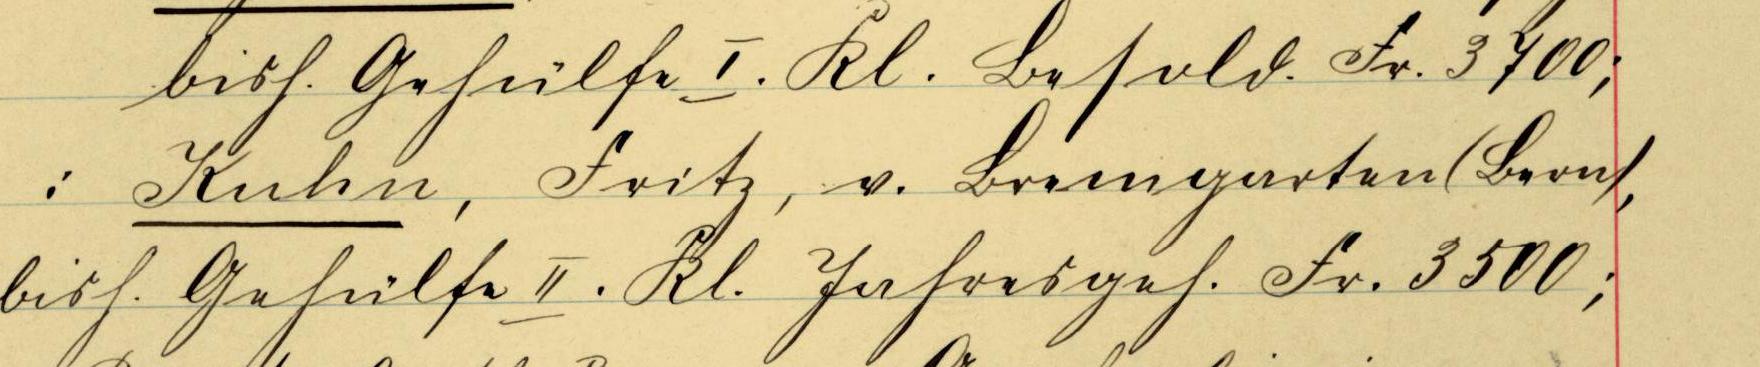 bish. Gehülfe I. Kl. Besold. Fr. 3700;
: Kuhn, Fritz, v. Bremgarten (Bern),
bish. Gehülfe II. Kl. Jahresgeh. Fr. 3500;